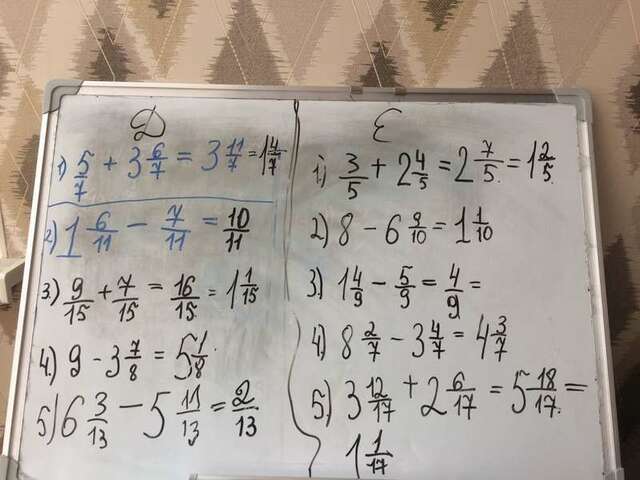 Д
1) 5/7 + 3 6/7 = 3 11/7 = 1 4/7
2) 1 6/11 - 7/11 = 10/11
3.) 9/15 + 7/15 = 16/15 = 1 1/15
4.) 9 - 3 7/8 = 5 1/8.
5) 6 3/13 - 5 11/13 = 2/13
Е
1) 3/5 + 2 4/5 = 2 7/5. = 1 2/5.
2) 8 - 6 9/10 = 1 1/10
3) 1 4/9 - 5/9 = 4/9 =
4) 8 2/7 - 3 4/7 = 4 3/7
5) 3 12/17 + 2 6/17 = 5 18/17. =
1 1/17